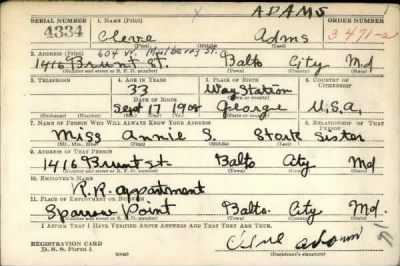 ADAMS
SERIAL NUMBER 1. NAME (Print) ORDER NUMBER
4334 Cleve Adms 3471-a
(First) (Middle) (Last)
2. ADDRESS (Print) 604 W. Mulberry St.
1416 Brunt St. Balto City Md
(Number and street or R. F. D. number) (Town) (County) (State)
3. TELEPHONE 4. AGE IN YEARS 5. PLACE OF BIRTH 6. COUNTRY OF CITIZENSHIP
33 Way Station
DATE OF BIRTH (Town or county)
Sept 17 1908 George U.S.A.
(Exchange) (Number) (Mo.) (Day) (Yr.) (State or country)
7. NAME OF PERSON WHO WILL ALWAYS KNOW YOUR ADDRESS 8. RELATIONSHIP OF THAT PERSON
Miss Annie S. Stork Sister
(Mr., Mrs., Miss) (First) (Middle) (Last)
9. ADDRESS OF THAT PERSON
1416 Brunt st Balto City Md
(Number and street or R. F. D. number) (Town) (County) (State)
10. EMPLOYER'S NAME
R.R. appartment
11. PLACE OF EMPLOYMENT OR BUSINESS
Sparow Point Balto. City Md.
(Number and street or R. F. D. number) (Town) (County) (State)
I AFFIRM THAT I HAVE VERIFIED ABOVE ANSWERS AND THAT THEY ARE TRUE.
REGISTRATION CARD
D. S. S. Form 1 (Registrant's signature)